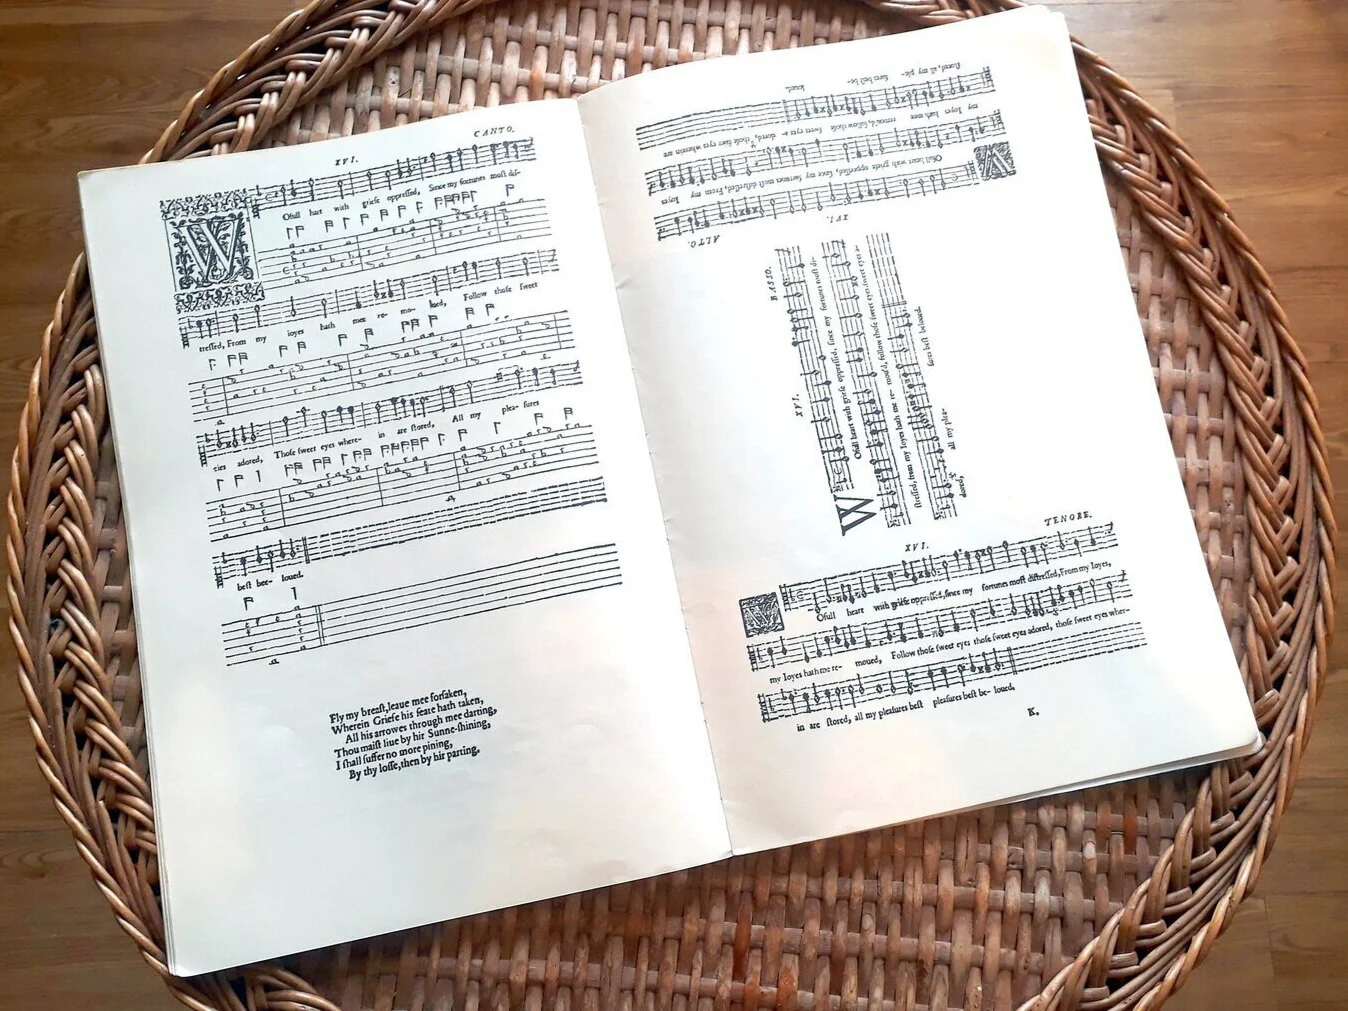 CANTO.
XVI.
WOfull hart with griefe oppressed, Since my fortunes most dis-
tressed, From my ioyes hath mee re- mo- Follow those sweet
eies adored, Those sweet eyes where- in are stored, All my plea- sures
best bee- loued.
Fly my breast, leaue mee forsaken,
Wherein Griefe his seate hath taken,
All his arrowes through mee darting,
Thou maist liue by hir Sunne-shining,
I shall suffer no more pining,
By thy losse, then by hir parting.
ALTO.
XVI.
WOfull heart with griefe oppressed, since my fortunes most distressed, From my Ioyes
my Ioyes hath mee remou'd, follow those sweet eyes adored, those sweet eyes wherein are
stored, all my ple- sures best be- loued.
BASSO.
XVI.
WOfull heart with griefe oppressed, since my fortunes most di-
stressed, from my Ioyes hath me re- mou'd, follow those sweet eyes, sweet eyes a-
dored, all my plea- sures best beloued.
TENORE.
XVI.
WOfull heart with griefe oppressed, since my fortunes most distressed, From my Ioyes,
my Ioyes hath me re- moued, Follow those sweet eyes those sweet eyes adored, those sweet eyes wher-
in are stored, all my pleasures best pleasures best be- loued,
K.